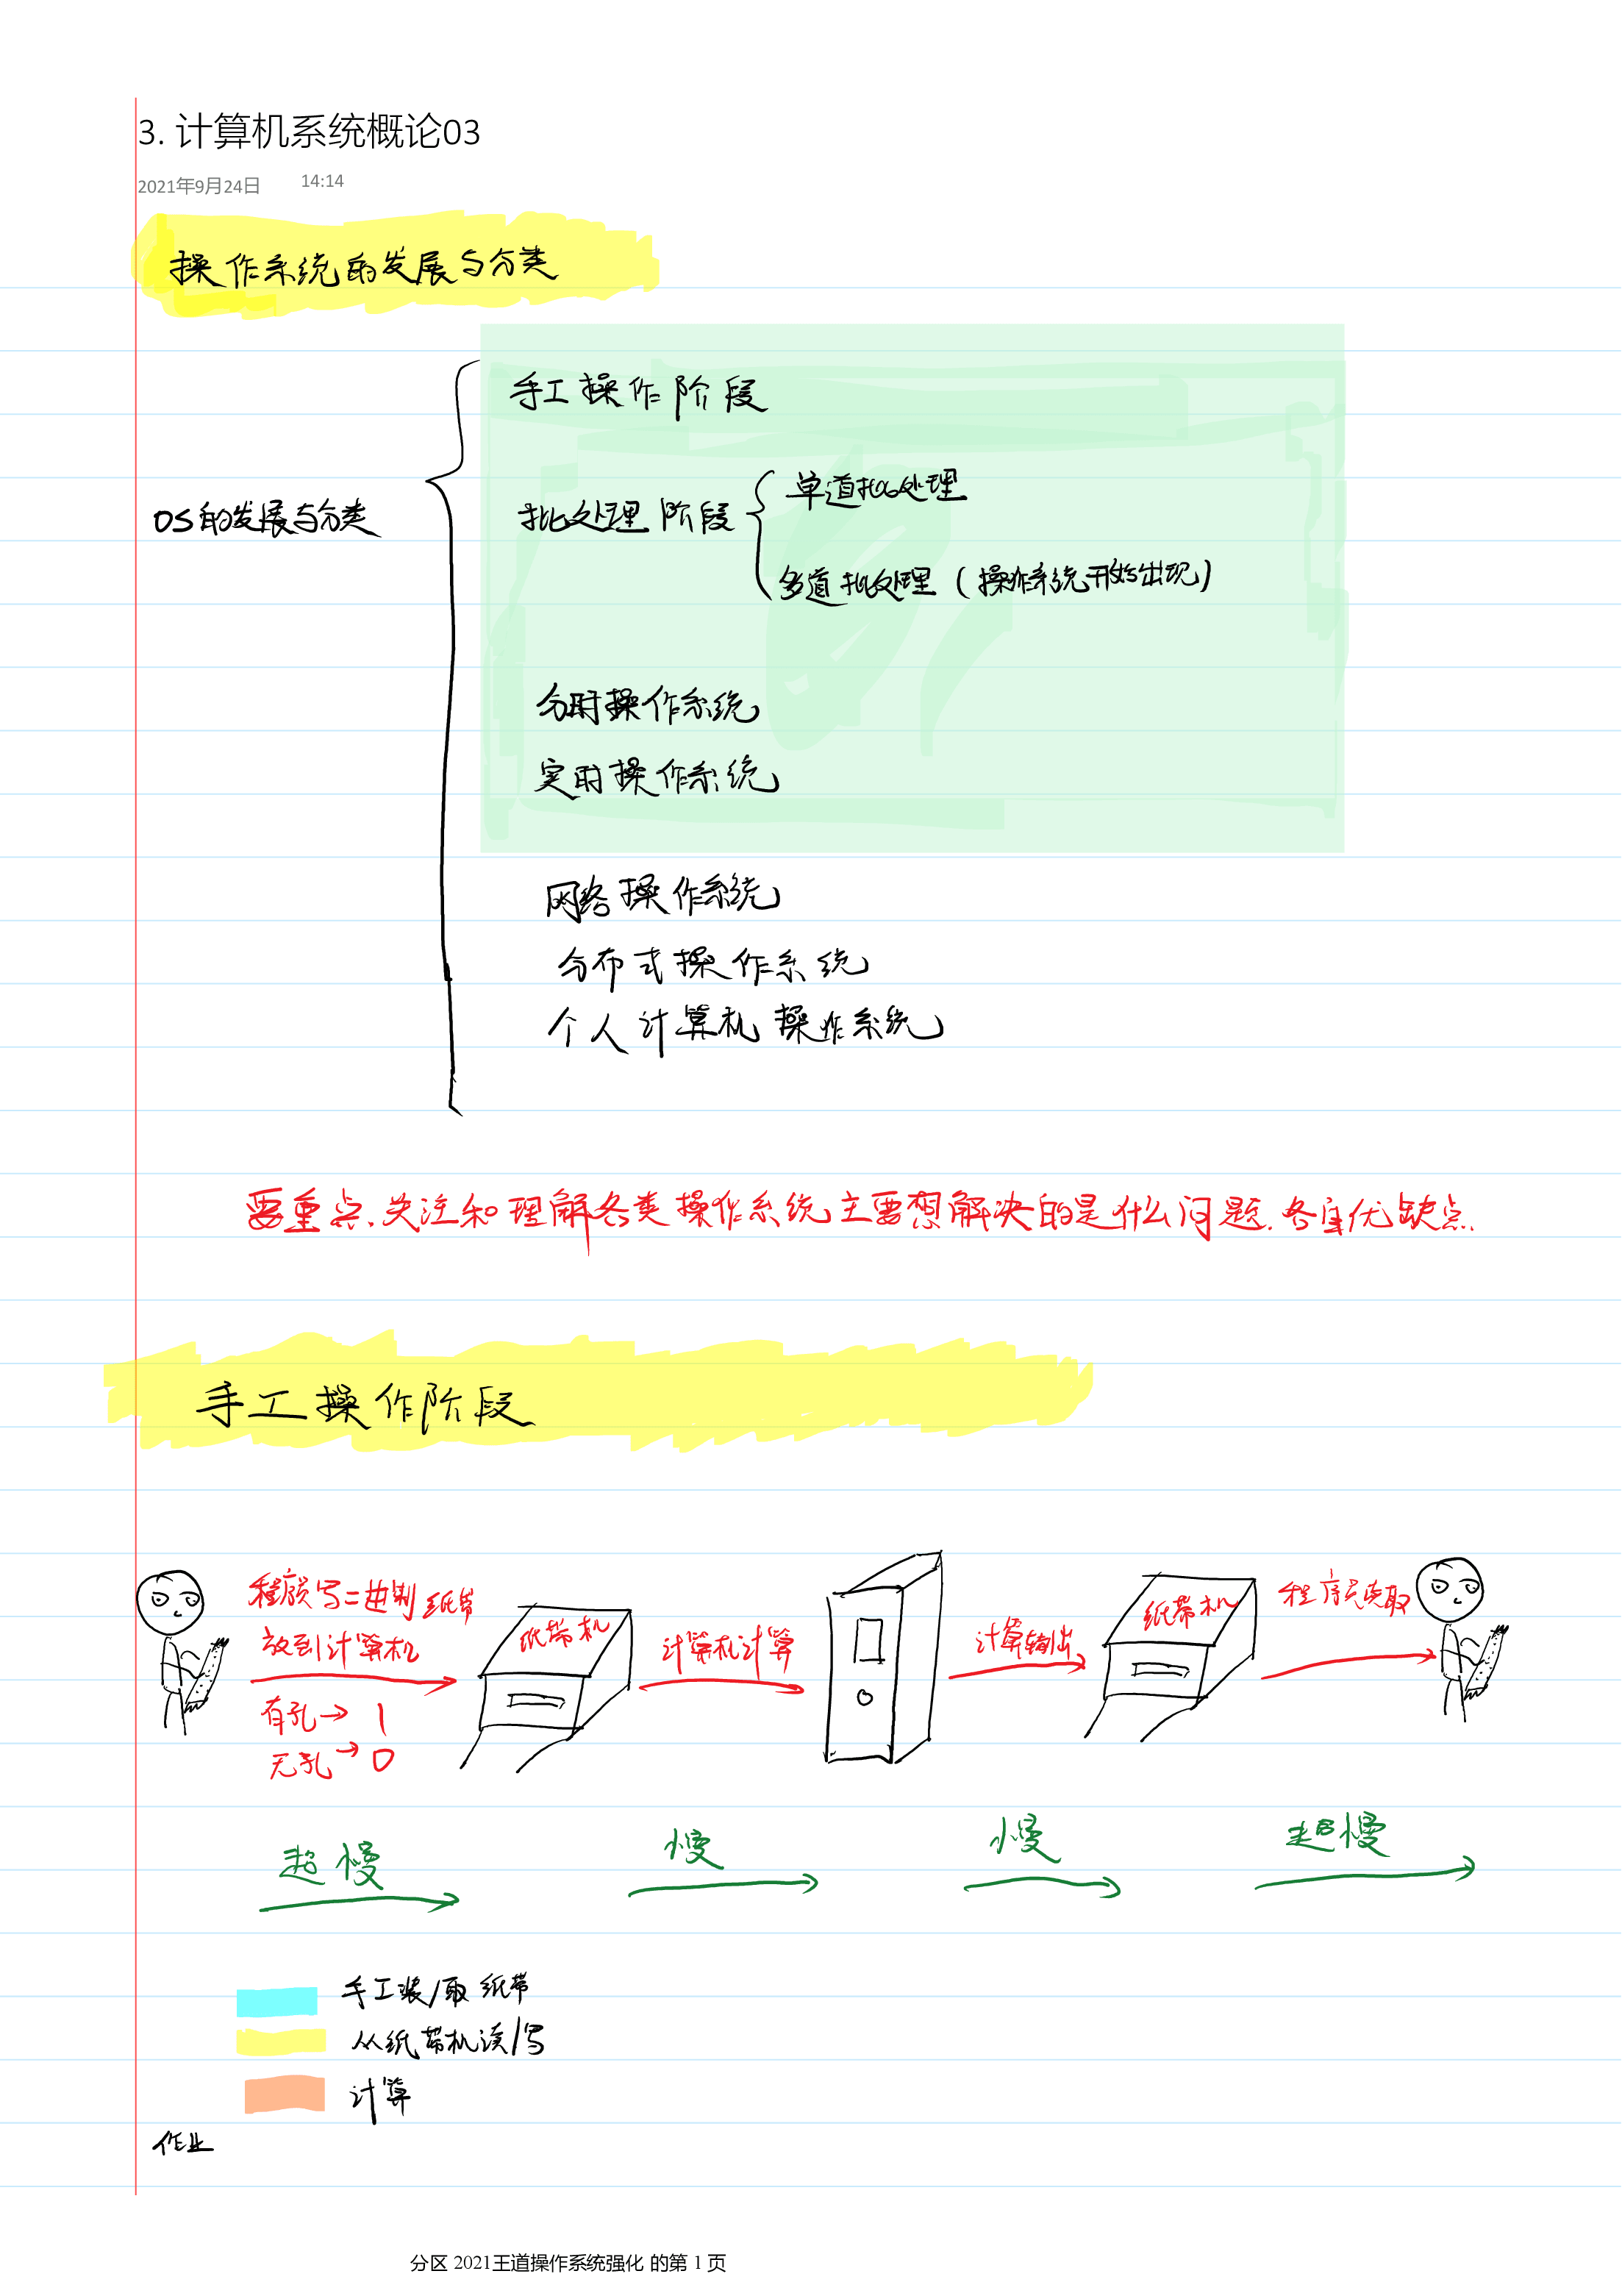 3. 计算机系统概论03
2021年9月24日 14:14
操作系统的发展与分类
手工操作阶段
单道批处理
OS的发展与分类
批处理阶段
多道批处理（操作系统开始出现）
分时操作系统
实时操作系统
网络操作系统
分布式操作系统
个人计算机操作系统
要重点.关注和理解各类操作系统主要想解决的是什么问题.各自优缺点.
手工操作阶段
程序员写二进制纸带
放到计算机
有孔→ 1
无孔→ 0
纸带机
计算机计算
计算输出
纸带机
程序员读取
超慢
慢
慢
超慢
手工装/取纸带
从纸带机读/写
计算
作业
分区 2021王道操作系统强化 的第 1 页